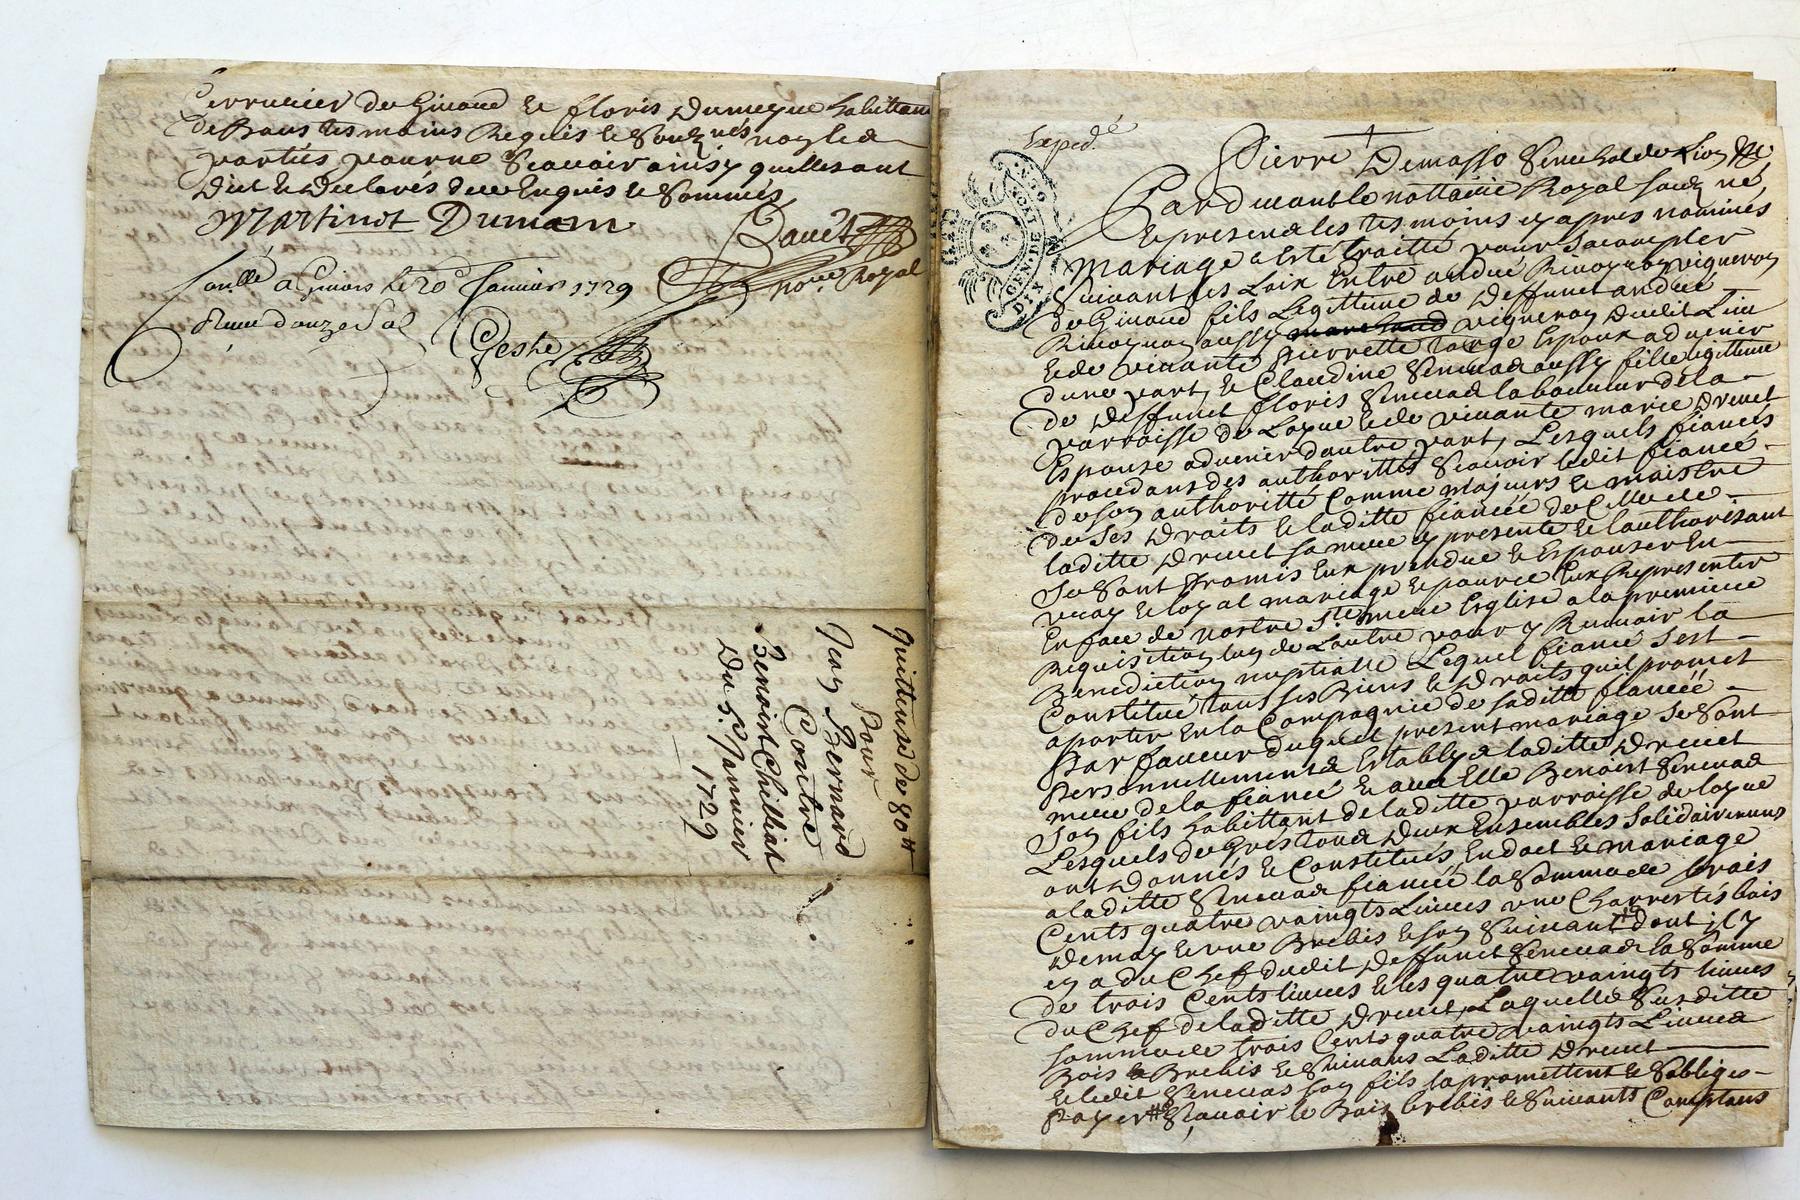 Serrurier de Givord et floris Dumeyne habittans
de Brons tesmoins Requis et Soubznés non les
parties pour ne Scavoir ainsy quelles ont
Dict et Declarés de ce Enquis et Sommés
Martinot Dumam
Bauet
no.re Royal
Conllé a Givors le 20e Janvier 1729
Reçu douze sol
Geste
Quittense de 80 tt
Pour
Jean Bernard
Contre
Benoist Chilliat
Du 5e Janvier
1729
Exped.é
Pierre Demasso Senechal de Lion
DIX
GEN. DE
LION
Pardeuant le nottaire Royal soubz né,
Et presence les tesmoins cy apres nommés
mariage a Esté traitté pour sacomplir
Suivant les Loix Entre andré Rivoyron vigneron
de Givord fils Legittime de Deffunct andré
Rivoyron aussy vigneron dudit Lieu
et de vivante pierrette targe Espoux aduenir
d'une part, et Claudine Seneuas aussy fille legittime
de Deffunct floris Seneuas laboureur de la
parroisse de Loyre et de vivante marie Dreuet
Espouse aduenir dautre part, Lesquels fiancés
procedans des authorittés Scavoir ledit fiancé
de son authoritté Comme majeurs et maistre
de ses Droits et laditte fiancée de Celle de
laditte Dreuet sa mere cy presente et lauthorisant
se sont Promis Eux prendre et Espouser En
vray et loyal mariage et pource Eux Representer
En face de nostre Ste mere Esglise a la premiere
Requisition lun de Lautre pour y Receuoir la
Benediction nuptialle Lequel fiancé sest
Constitué tous ses Biens et Droits quil promet
aporter En la Compagnie de saditte fiancée
Par faueur duquel present mariage se sont
Personnellement Establys laditte Dreuet
mere de la fiancé et auec Elle Benoist Seneuas
son fils habittant de laditte parroisse de loyre
Lesquels de gréstous Deux Ensembles Solidairement
ont Donnés et Constitués En dot et mariage
a laditte Seneuas fiancée la somme de trois
Cents quatre vaingts Liures vne Charrettés bois
Demay et vne Brebis et son Suivant dont il y
en a du Chef dudit Deffunct Seneuas la somme
de trois Cents liures et les quatre vaingts liures
du Chef de laditte Dreuet, Laquelle Susditte
somme de trois Cents quatre vaingts Liures
Bois Brebis et Suivans Laditte Dreuet
et ledit Seneuas son fils la promettent et Sobliges
Payer Scavoir le Bois brebis et Suivants Comptans